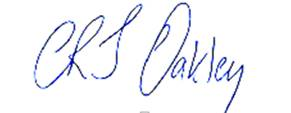 CRJ Oakley